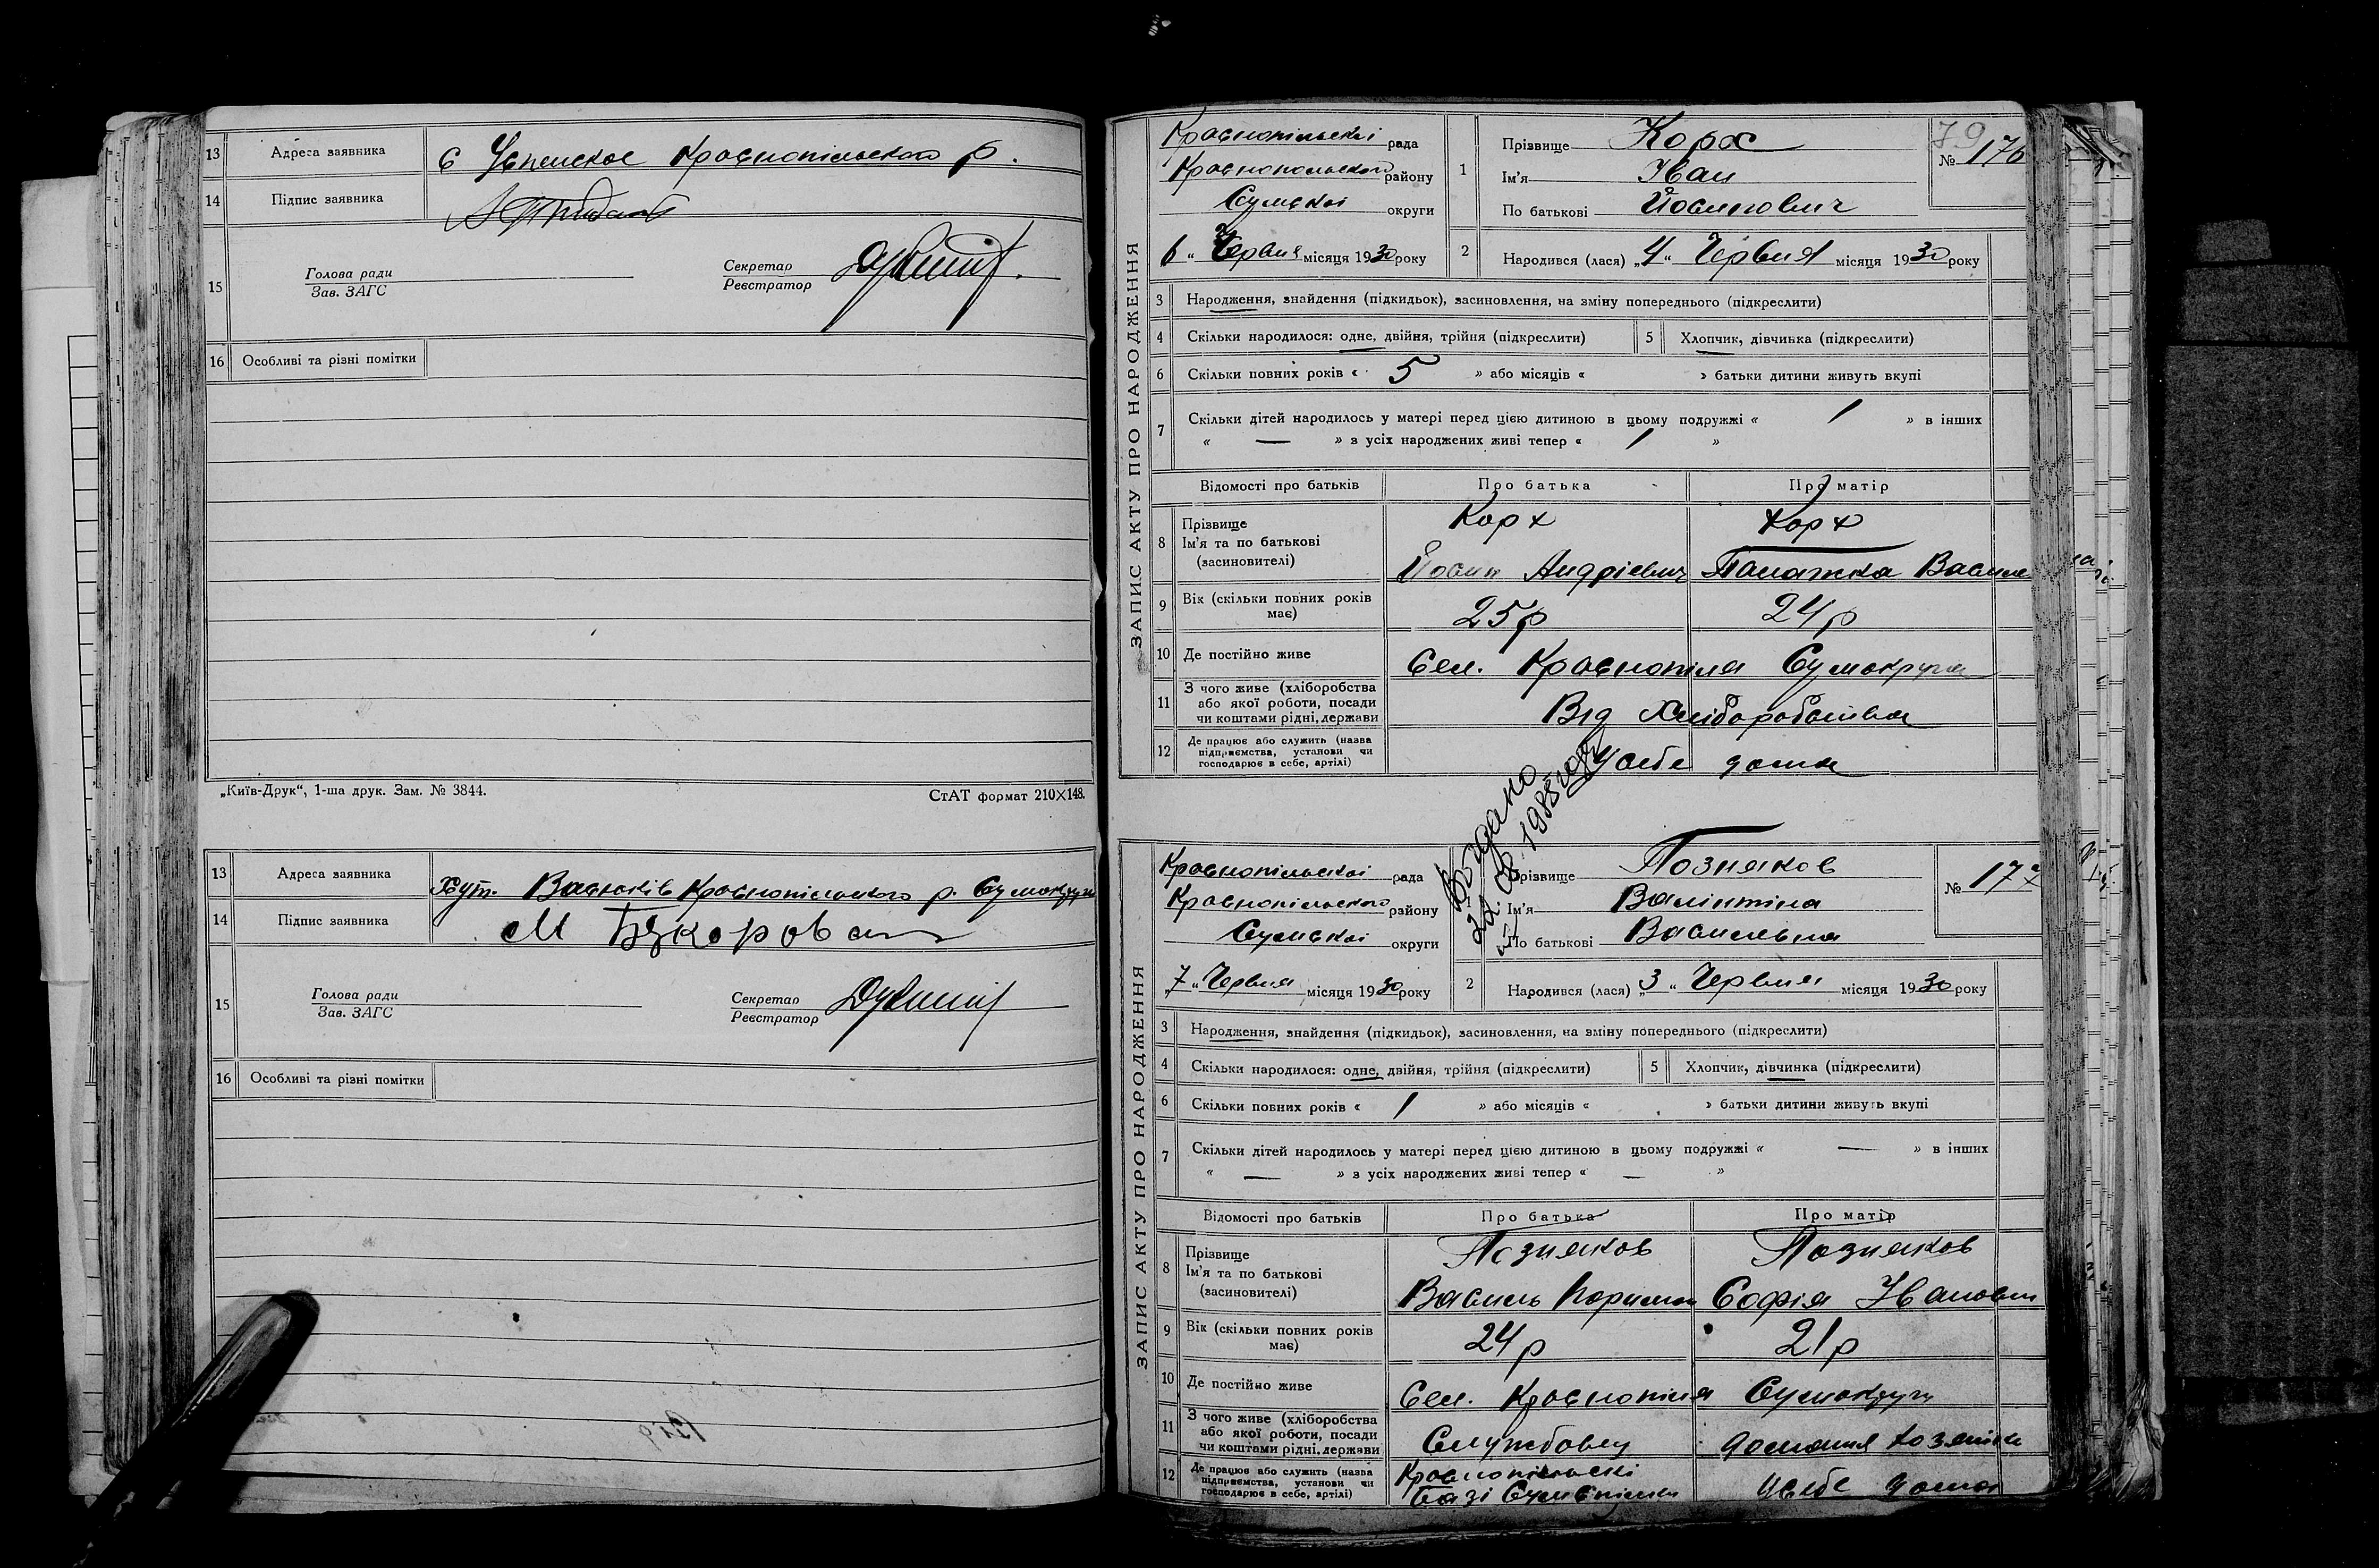 13 Адреса заявника с Успенское Краснопільського р.
14 Підпис заявника
15 Голова ради
Зав. ЗАГС
Секретар
Реєстратор
16 Особливі та різні помітки
„Київ-Друк“, 1-ша друк. Зам. № 3844. СтАТ формат 210×148.
13 Адреса заявника Хут. Васюків Краснопільського р. Сумокруги
14 Підпис заявника М
15 Голова ради
Зав. ЗАГС
Секретар
Реєстратор
16 Особливі та різні помітки
ЗАПИС АКТУ ПРО НАРОДЖЕННЯ
79
Краснопільської рада
Краснопольської району
Сумської округи
6 „ Червня місяця 1930 року
1 Прізвище Корх
Ім'я Іван
По батькові Йосипович
№ 176
2 Народився (лася) „4“ Червня місяця 1930 року
3 Народження, знайдення (підкидьок), засиновлення, на зміну попереднього (підкреслити)
4 Скільки народилося: одне, двійня, трійня (підкреслити) 5 Хлопчик, дівчинка (підкреслити)
6 Скільки повних років « 5 » або місяців « » батьки дитини живуть вкупі
7 Скільки дітей народилось у матері перед цією дитиною в цьому подружжі « 1 » в інших
« — » з усіх народжених живі тепер « 1 »
Відомості про батьків Про батька Про матір
8 Прізвище Корх Корх
Ім'я та по батькові
(засиновителі) Йосип Андрієвич Палажка
9 Вік (скільки повних років має) 25р 24р
10 Де постійно живе Сел. Краснопіля Сумокруги
11 З чого живе (хліборобства
або якої роботи, посади
чи коштами рідні, держави Від Хліборобства
12 Де працює або служить (назва
підприємства, установи чи
господарює в себе, артілі) Усебе дома
Выдано
22 08 1985 года
ЗАПИС АКТУ ПРО НАРОДЖЕННЯ
Краснопільської рада
Краснопільського району
Сумської округи
„7„ Червня місяця 1930 року
1 Прізвище Позняков
Ім'я Валінтіна
По батькові Васильевна
№ 177
2 Народився (лася) „3“ Червня місяця 1930 року
3 Народження, знайдення (підкидьок), засиновлення, на зміну попереднього (підкреслити)
4 Скільки народилося: одне, двійня, трійня (підкреслити) 5 Хлопчик, дівчинка (підкреслити)
6 Скільки повних років « 1 » або місяців « » батьки дитини живуть вкупі
7 Скільки дітей народилось у матері перед цією дитиною в цьому подружжі « — » в інших
« — » з усіх народжених живі тепер « — »
Відомості про батьків Про батька Про матір
8 Прізвище Позняков Позняков
Ім'я та по батькові
(засиновителі) Василь Софія Івановн
9 Вік (скільки повних років має) 24р 21р
10 Де постійно живе Сел. Краснопіля Сумокруги
11 З чого живе (хліборобства
або якої роботи, посади
чи коштами рідні, держави Службовец домашня хозяйка
12 Де працює або служить (назва
підприємства, установи чи
господарює в себе, артілі) Краснопільскі
базі Усебе дома